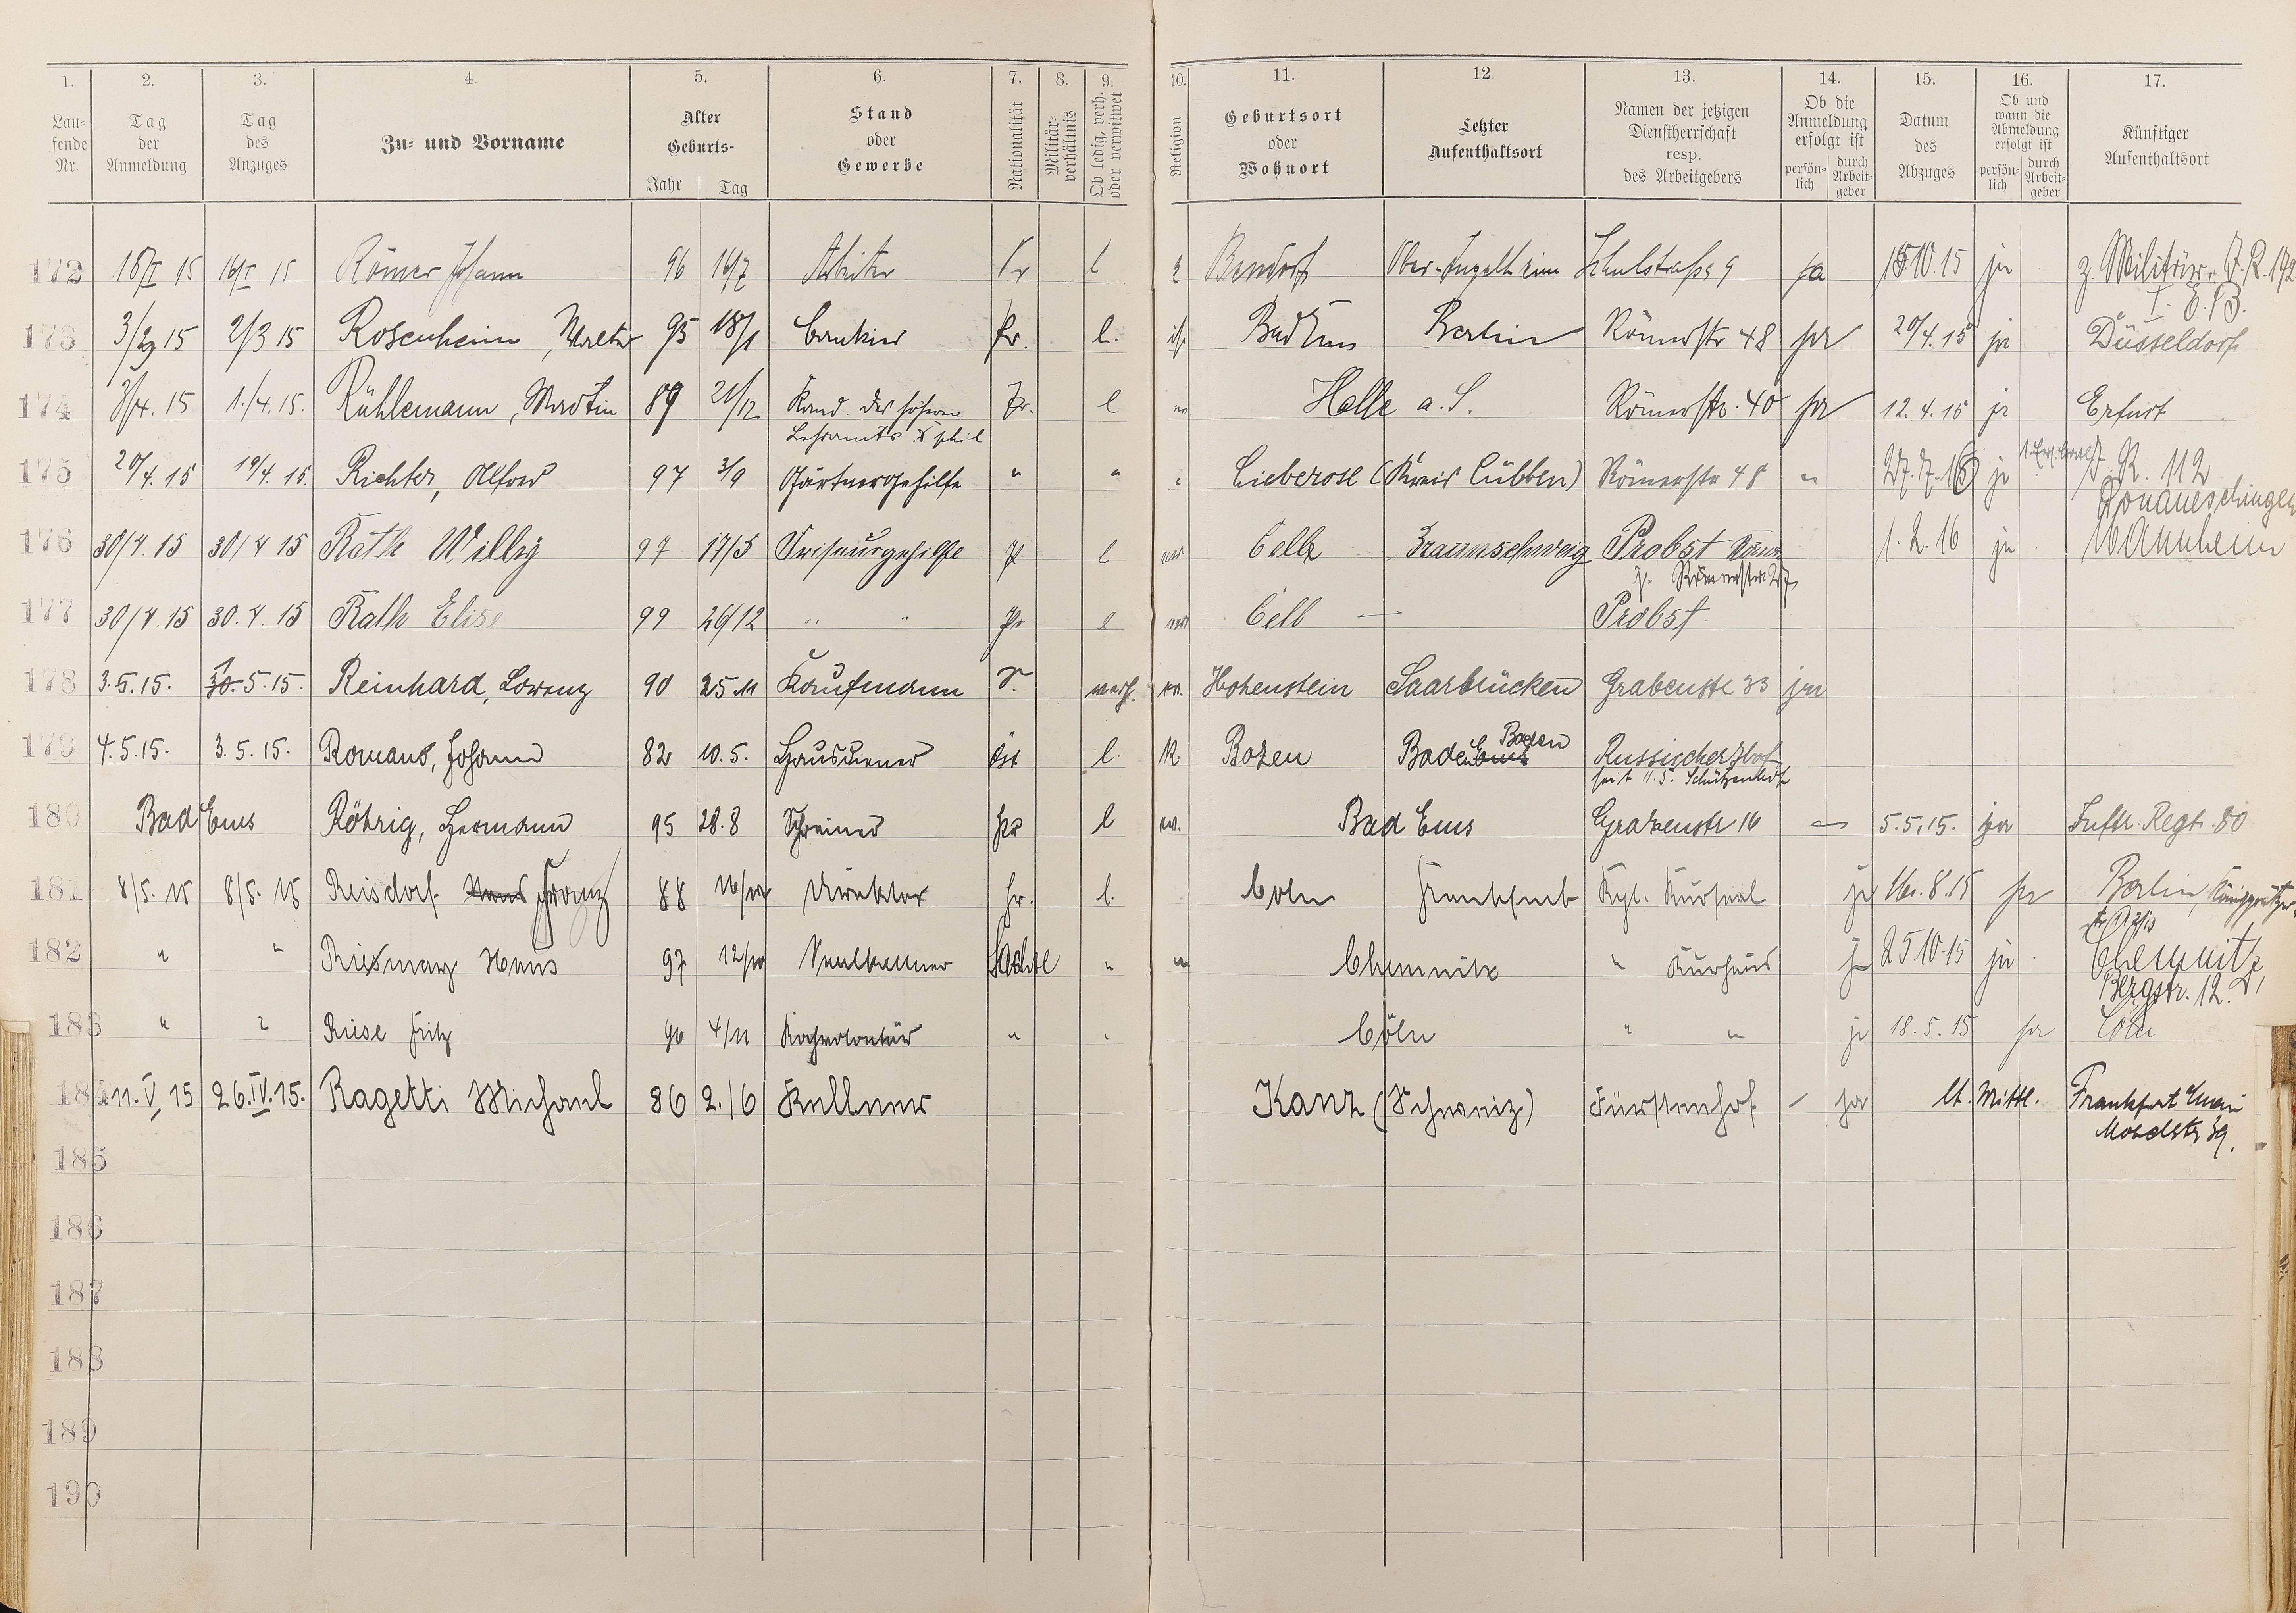 1. 2. 3. 4. 5. 6. 7. 8. 9. 10. 11. 12. 13. 14. 15. 16. 17.
Lau-
fende
Nr.
Tag
der
Anmeldung
Tag
des
Anzuges
Zu- und Vorname
Alter
Geburts-
Jahr Tag
Stand
oder
Gewerbe
Nationalität
Militär-
verhältnis
Ob ledig, verh.
oder verwitwet
Religion
Geburtsort
oder
Wohnort
Letzter
Aufenthaltsort
Namen der jetzigen
Dienstherrschaft
resp.
des Arbeitgebers
Ob die
Anmeldung
erfolgt ist
persön-
lich
durch
Arbeit-
geber
Datum
des
Abzuges
Ob und
wann die
Abmeldung
erfolgt ist
persön-
lich
durch
Arbeit-
geber
Künftiger
Aufenthaltsort
172 Römer Johann 96 16/7 Arbeiter Pr l Bendorf Ober-Ingelheim Schulstraße 9 ja 15.10.15 ja z. Militär. J.R. 172
I. E.B.
173 2/3 15 Rosenheim, Walter 95 18/1 Bankier Pr. l. isr. Bad Ems Berlin Römerstr 48 ja 20/4.15 ja Düsseldorf
174 3/4. 15 1./4. 15. Rühlemann, Martin 89 21/12 Kand. des höheren Pr. l Halle a. S. Römerstr. 40 ja 12. 4. 15 ja Erfurt
Lehramts phil
175 20/4. 15 19/4. 15. Richter, Alfred 97 3/9 Gärtnergehilfe " " Lieberose (Kreis Lübben) Römerstr 48 " ja J. R. 112
Donaueschingen
176 30/4. 15 30/4 15 Rath Willy 97 17/5 Friseurgehilfe Pr l Celle Braunschweig Probst 1. 2. 16 ja Mannheim
177 30/4. 15 30. 4. 15 Rath Elise 99 26/12 " " Pr l Cell — Probst
178 3. 5. 15. 30. 1 5. 15. Reinhard, Lorenz 90 25. 11 Kaufmann verh. ev. Hohenstein Saarbrücken Grabenstr 33 ja
179 4. 5. 15. 3. 5. 15. Romano, Johann 82 10. 5. Hausdiener öst l. K Bozen Baden Ems Baden Russischer Hof
seit 11. 5. Schützenhof
180 Bad Ems Röhrig, Hermann 95 28. 8 Schreiner Pr l ev. Bad Ems Grabenstr 16 — 5. 5. 15. ja Inftr. Regt. 80
181 8/5. 15 8/5. 15 Reisdorf Hans Franz 88 Direktor Pr. l. Coln Frankfurt Kgl. Kursaal ja 16. 8. 15 ja Berlin, Königgrätzer-
182 " " Hans 97 Saalkellner Sachse " " Chemnitz " Kurhaus ja 25 10. 15 ja Chemnitz,
Bergstr. 12.
183 " " Riese Fritz 96 4/11 Kochvolontär " Cöln " " ja 18. 5. 15 ja Cöln
184 11. V 15 26. IV. 15. Ragetti Michael 86 2. /6 Kellner Kanz (Schweiz) Fürstenhof - ja lt. Mittl. Frankfurt Main
Moselstr 39.
185
186
187
188
189
190